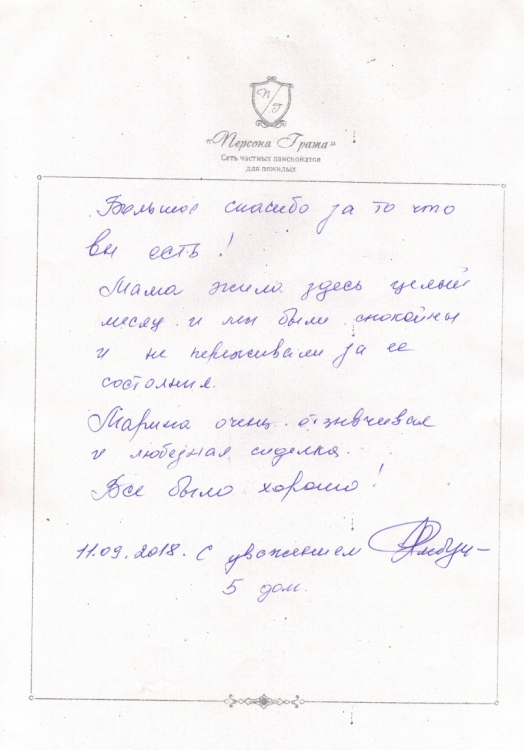 П
Г
«Персона Грата»
Сеть частных пансионатов
для пожилых
Большое спасибо за то что
вы есть!
Мама жила здесь целый
месяц и мы были спокойны
и не переживали за ее
состояния.
Марина очень отзывчивая
и любезная сиделка.
Все было хорошо!
11.09.2018. С уважением
5 дом.